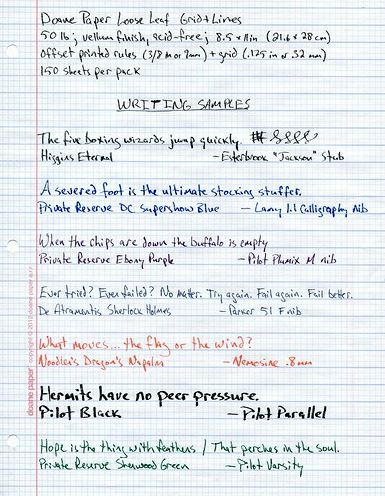 Doane Paper Loose Leaf Grid + Lines
50 lb; vellum finish, acid-free; 8.5 x 11in (21.6 x 28cm)
Offset printed rules (3/8 in or 9mm) + grid (.125 in or .32 mm)
150 sheets per pack
WRITING SAMPLES
The five boxing wizards jump quickly.
Higgins Eternal – Esterbrook "Jackson" Stub
A severed foot is the ultimate stocking stuffer.
Private Reserve DC Supershow Blue – Lamy 1.1 Calligraphy nib
When the chips are down the buffalo is empty
Private Reserve Ebony Purple – Pilot Plumix M nib
Ever tried? Ever failed? No matter. Try again. Fail again. Fail better.
De Atramentis Sherlock Holmes – Parker 51 F nib
What moves... the flag or the wind?
Noodler's Dragon's Napalm – Nemosine .8mm
Hermits have no peer pressure.
Pilot Black – Pilot Parallel
Hope is the thing with feathers / That perches in the soul.
Private Reserve Sherwood Green – Pilot Varsity
doane paper